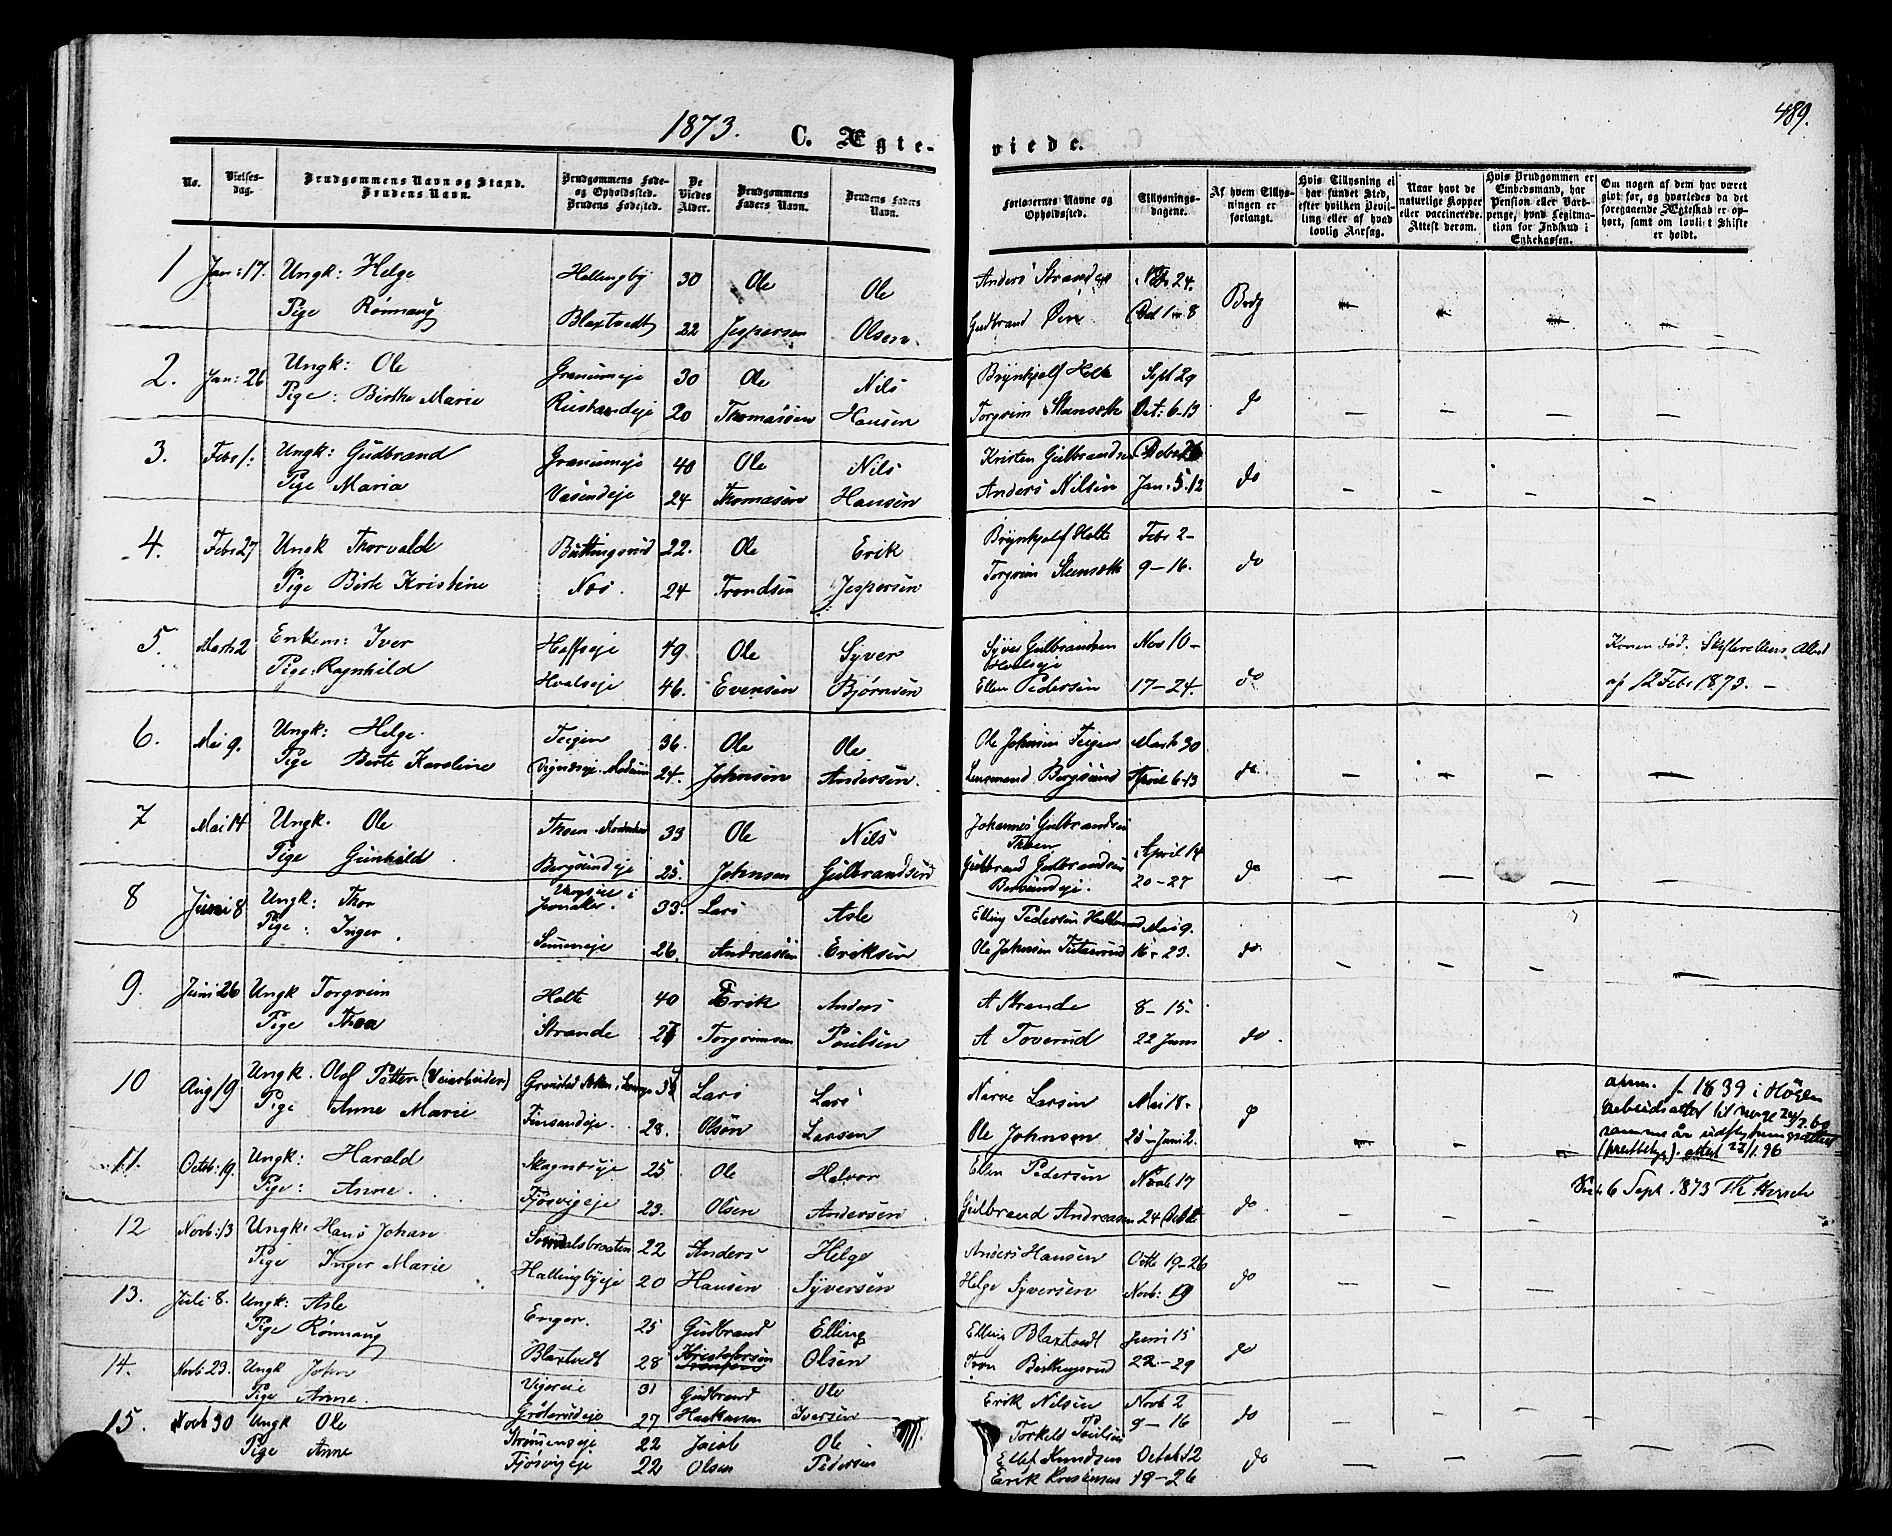 1873. C. Ægteviede. 489.
No. Vielsesdag. Brudgommens Navn og Stand. Brudens Navn. Brudgommens Føde- og Opholdssted. Brudens Fødested. De Viedes Alder. Brudgommens Faders Navn. Brudens Faders Navn. Forlovernes Navne og Opholdssted. Tillysningsdagene. Af hvem Tillysningen er forlangt. Hvis Tillysning ei har fundet Sted, efter hvilken Bevilling eller af hvad lovlig Aarsag. Naar havt de naturlige Kopper eller vaccinerede. Attest derom. Hvis Brudgommen er Embedsmand, har Pension eller Vartpenge, hvad Legitimation for Indskud i Enkekassen. Om nogen af dem har været gift før, og hvorledes da det foregaaende Ægteskab er ophørt, samt om lovligt Skifte er holdt.
1 Jan: 17. Ungk: Helge Hallingby 30 Ole Ole Anders Strande 24.
Pige Rønnaug Blaxtvedt 22 Jespersen Olsen Gudbrand 1 8 Brdg
2. Jan: 26 Ungk: Ole Granumeje 30 Ole Nils Brynhjelf Holte Sept 29
Pige: Birthe Marie 20 Thomassen Hansen Torgrim Octr: 6-13 do
3. Febr 1: Ungk: Gudbrand Granumeje 40 Ole Nils Kristen Gulbrandsen Debr 26
Pige Maria Vasendeje 24 Thomasen Hansen Anders Nilsen Jan: 5-12 do
4. Febr 27 Ungk Thorvald Buttingsrud 22. Ole Erik Brynhjelf Holte Febr 2-
Pige Birte Kristine Næs. 24 Trondsen Jespersen Torgrim 9-16. do
5. Marts 2 Enkem: Iver 49. Ole Syver Syver Gulbrandsen Hvalseje Nov 10- Konen død. Skifterettens Attest
Pige. Ragnhild Hvalseje 46. Evensen Bjørnsen Ellen Pedersen 17-24. do af 12 Febr 1873.
6. Mai 9. Ungk: Helge. Teigen 36. Ole Ole Ole Johnsen Teigen Marts 30
Pige Birte Karoline Modum 24. Johnsen Andersen. Lensmand Bergsund April 6-13 do.
7 Mai 14 Ungk. Ole Thoen 33 Ole Nils Johannes Gulbrandsen Thoen April 14
Pige Gunhild Bergsundeje 25. Johnsen Gulbrandsen Gulbrand Gulbrandsen Bersundeje. 20-27 do
8 Juni 8 Ungk: Thor Jevnaker. 33. Lars Asle Elling Pedersen Mai 9.
Pige: Inger. 26. Andreassen Eriksen Ole Johnsen 16-23. do
9. Juni 26 Ungk Torgrim Holte 40 Erik Anders A Strande 8-15.
Pige Thea Strande 27 Torgrimsen Poulsen A Toverud 22 Juni do.
10 Aug 19 Ungk. Olof Petter (Veiarbeider) 34 Lars Lars Narve Larsen Mai 18.
Pige Anne Marie Finsandeje. 28. Olsen Larsen Ole Johnsen 25-Juni 2. do
f. 1839 i Högen
arbeidsattest til Norge 24/2 69
samme år udflytningsattest
(prestbetyg). attest 22/1.96
6 Sept. 1873
11. Octob: 19. Ungk: Harald Skagnæseje 25 Ole Halvor Ellen Pedersen Novb 17
Pige: Anne. Fjøsvigeje 23. Olsen Andersen Gulbrand Andreasen 24 do.
12 Novb: 13 Ungk: Hans Johan Somdalsbraaten 22 Anders Helge Anders Hansen Octb 19-26
Pige Inger Marie Hallingbyeje 20 Hansen Syversen Helge Syversen Novb: 19 do
13. Juli 8. Ungk: Asle Enger. 25 Gudbrand Elling Elling Blaxtvedt Juni 15
Pige Rønnaug Blaxtvedt 28 Kristofersen Olsen Tron 22-29 do
14. Novb: 23. Ungk John 31 Gudbrand Ole Erik Nilsen Novb 2
Pige Anne. 27 Haakensen Iversen Torkild Poulsen 9-16 do
15. Novb 30 Ungk Ole Strømenseje 22 Jacob Ole Ellef Knudsen Octob: 12
Pige Anne Fjøsvigeje 22 Olsen Pedersen Erik Kristensen 19-26 do